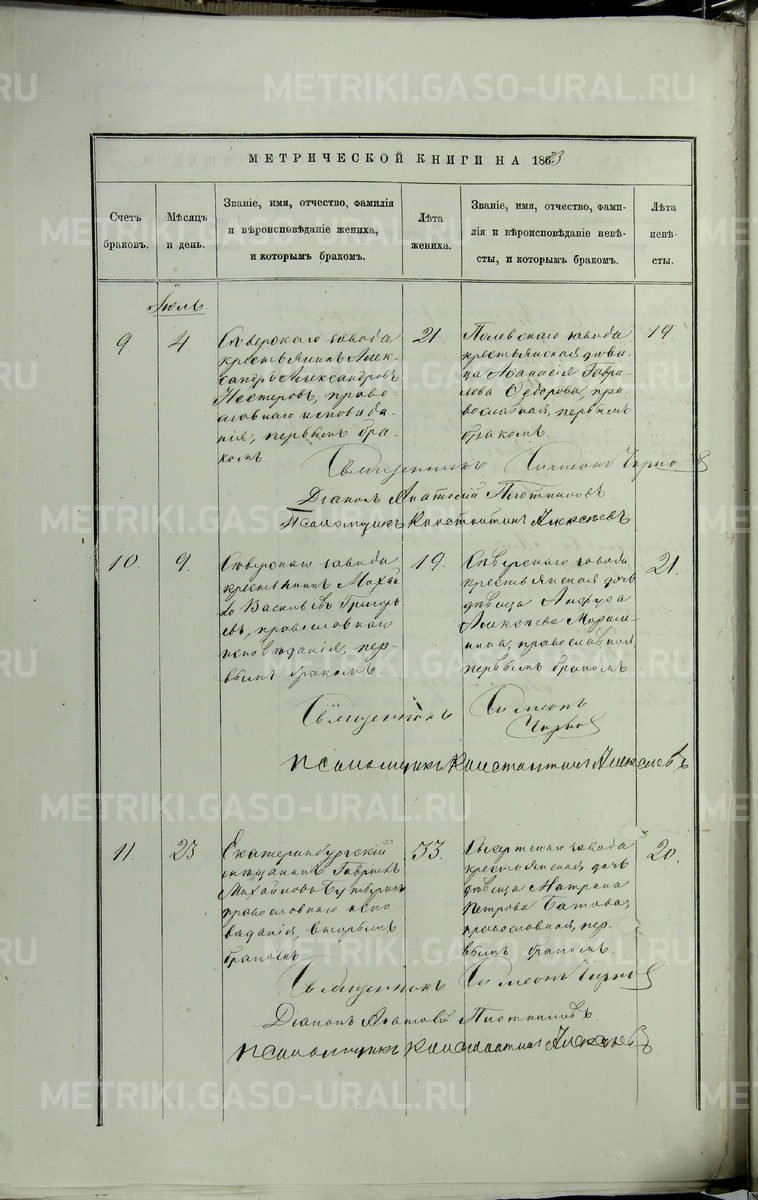 METRIKI.GASO-URAL.RU
МЕТРИЧЕСКОЙ КНИГИ НА 1883
Счетъ браковъ.
Мѣсяцъ и день.
Званіе, имя, отчество, фамилія
и вѣроисповѣданіе жениха,
и которымъ бракомъ.
Лѣта жениха.
Званіе, имя, отчество, фами-
лія и вѣроисповѣданіе невѣ-
сты, и которымъ бракомъ.
Лѣта невѣ-
сты.
Іюль
9
4
Сѣверскаго завода
крестьянинъ Алек-
сандръ Александровъ
Нестеровъ, право-
славнаго исповѣда-
нія, первымъ бра-
комъ.
21
Полевскаго завода
крестьянская дѣви-
ца Аѳанасія Гаври-
лова Ѳедорова, пра-
вославная, первымъ
бракомъ.
19.
Священникъ Симеонъ
Діаконъ Анатолій Плотниковъ.
Псаломщикъ Константинъ Алексѣевъ
10.
9.
Сѣверскаго завода
крестьянинъ Михаи-
лъ Васильевъ Григорь-
евъ, православнаго
исповѣданія, пер-
вымъ бракомъ.
19.
Сѣверскаго завода
крестьянская дочь
дѣвица
Алексѣева
православная,
первымъ бракомъ
21.
Священникъ Симеонъ
Псаломщикъ Константинъ Алексѣевъ
11.
23
Екатеринбургскій
мѣщанинъ Гавріилъ
Михайловъ
православнаго испо-
вѣданія, вторымъ
бракомъ
33.
Сысертскаго завода
крестьянская дочь
дѣвица Матрона
Петрова Батова,
православная, пер-
вымъ бракомъ.
20.
Священникъ Симеонъ
Діаконъ Анатолій Плотниковъ.
Псаломщикъ Константинъ Алексѣевъ